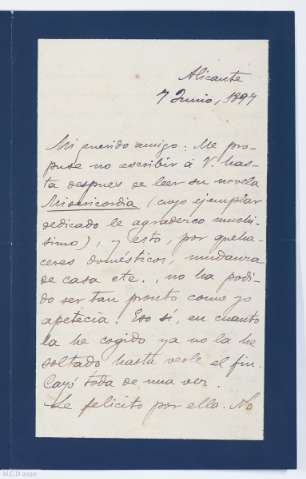 Alicante
7 Junio, 1897
Mi querido amigo: Me pro-
puse no escribir á V. has-
ta despues de leer su novela
Misericordia (cuyo ejemplar
dedicado le agradezco muchi-
simo), y esto, por queha-
ceres domésticos, mudanza
de casa etc., no ha podi-
do ser tan pronto como yo
apetecia. Eso sí, en cuanto
la he cogido ya no la he
soltado hasta verle el fin.
Cayó toda de una vez.
Le felicito por ello. No